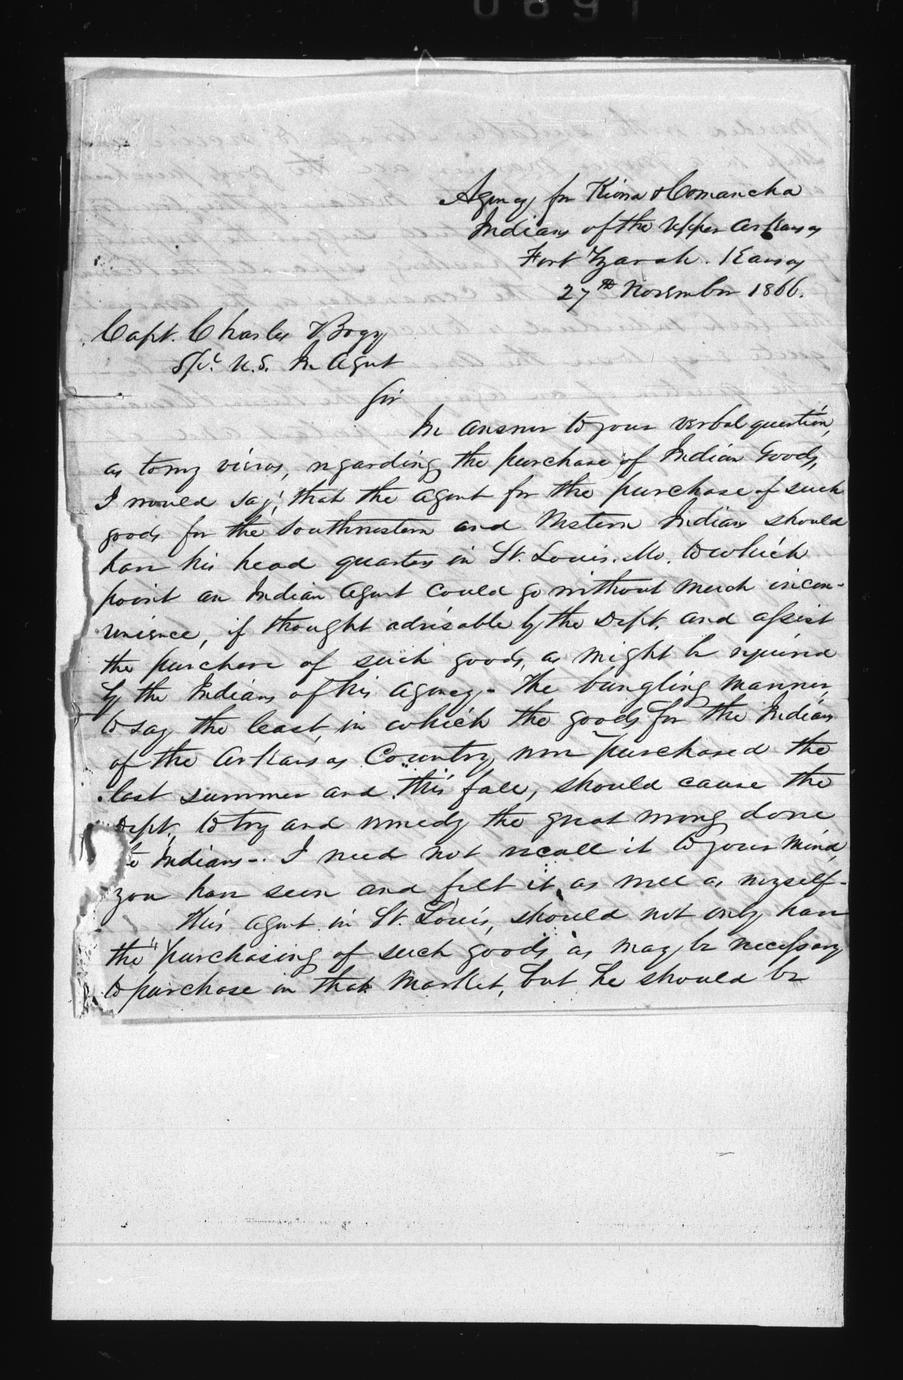 Agency for Kiowa & Comancha
Indians of the Upper Arkansas
Fort Zarah. Kansas
27th November 1866.
Capt. Charles Bogy
Spl. U.S. In Agent
Sir
In answer to your verbal question,
as to my views, regarding the purchase of Indian Goods,
I would say, that the agent for the purchase of such
goods for the Southwestern and Western Indians should
have his head quarters in St. Louis. Mo. to which
point an Indian Agent could go without much incon-
venience, if thought advisable by the Dept. and assist
the purchase of such goods, as might be required
by the Indians of his Agency. The bungling manner
to say the least, in which the goods for the Indians
of the Arkansas Country were purchased the
last summer and this fall, should cause the
Dept. to try and remedy the great wrong done
to Indians-. I need not recall it to your mind,
you have seen and felt it, as well as myself-.
This agent in St. Louis, should not only have
the purchasing of such goods as may be necessary
to purchase in that Market, but he should be